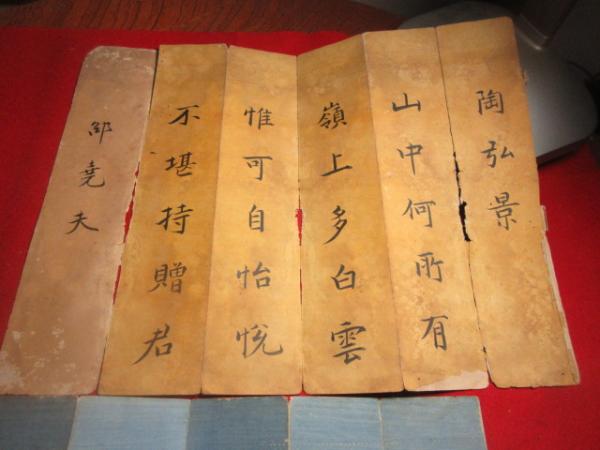 陶弘景
山中何所有
嶺上多白雲
惟可自怡悅
不堪持贈君
邵堯夫